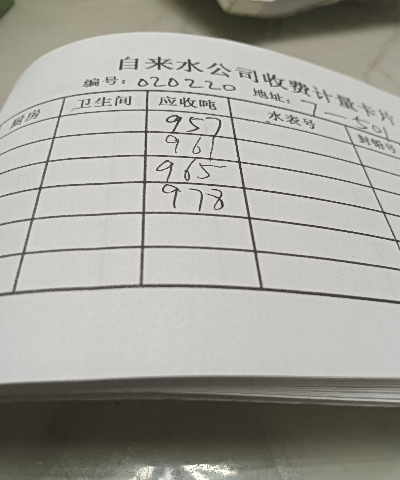 自来水公司收费计量卡片
编号：020220 地址：7—501
厨房 卫生间 应收吨 水表号 封铅号
957
961
965
978